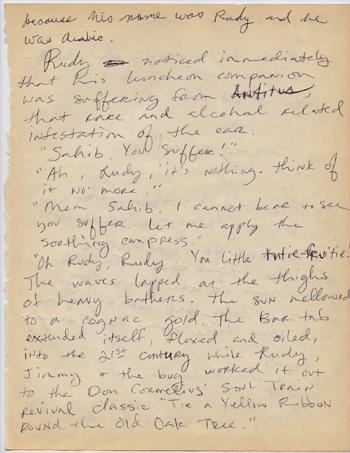 because his name was Rudy and he
was Arabic.
Rudy noticed immediately
that his luncheon companion
was suffering from Antitus,
that rare and alcohol related
infestation of the ear.
"Sahib. You suffer!"
"Ah, Rudy, it's nothing. think of
it no more."
"Mem Sahib. I cannot bear to see
you suffer. Let me apply the
soothing compress."
"Oh Rudy, Rudy. You little tutie-fruitie.
The waves lapped at the thighs
of heavy bathers. The sun mellowed
to a cognac gold. The Bar tab
extended itself, flaxed and oiled,
into the 21st century while Rudy,
Jimmy & the bug worked it out
to the Don Cornelius' Soul Train
revival classic "Tie a Yellow Ribbon
Round the Old Oak Tree."